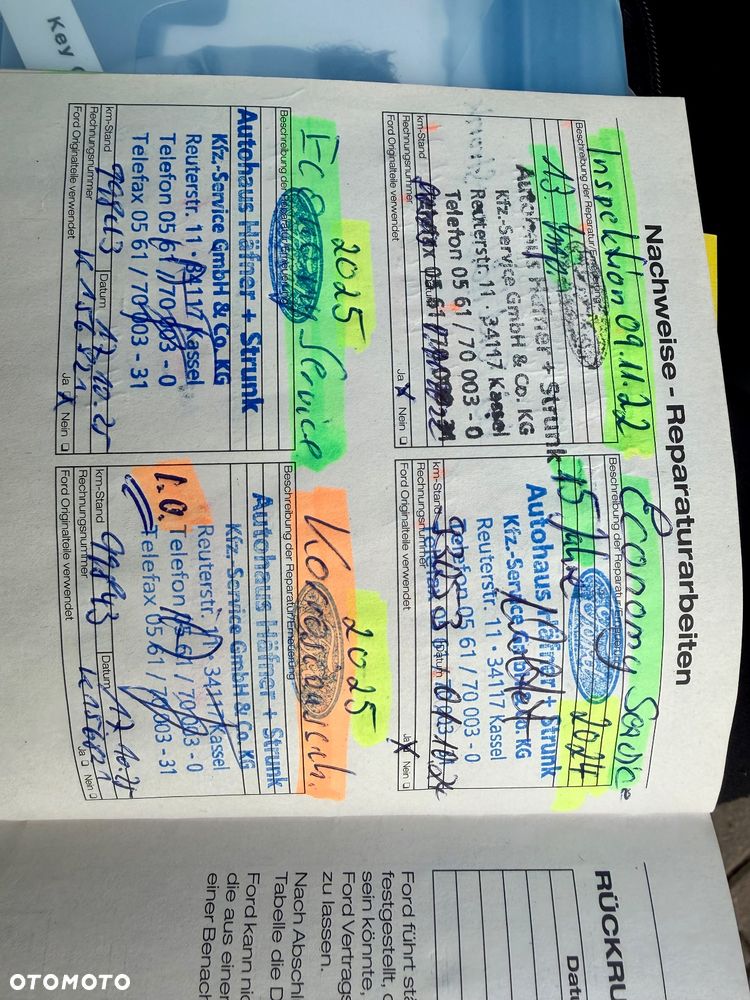 Key
Nachweise - Reparaturarbeiten
Inspektion 09.11.22
Beschreibung der Reparatur/Erneuerung
13
Autohaus Häfner + Strunk
Kfz-Service GmbH & Co. KG
Reuterstr. 11 · 34117 Kassel
Telefon 05 61 / 70 003 - 0
Telefax 05 61 / 70 003 - 31
km-Stand
Datum
Rechnungsnummer
Ford Originalteile verwendet Ja X Nein
Economy Service
Beschreibung der Reparatur/Erneuerung
15 Jahre 2024
Autohaus Häfner + Strunk
Kfz-Service GmbH & Co. KG
Reuterstr. 11 · 34117 Kassel
Telefon 05 61 / 70 003 - 0
km-Stand
Datum
Rechnungsnummer
Ford Originalteile verwendet Ja X Nein
2025
Service
Beschreibung der Reparatur/Erneuerung
Autohaus Häfner + Strunk
Kfz-Service GmbH & Co. KG
Reuterstr. 11 · 34117 Kassel
Telefon 05 61 / 70 003 - 0
Telefax 05 61 / 70 003 - 31
km-Stand 99843 Datum 17.10.25
Rechnungsnummer K156821
Ford Originalteile verwendet Ja X Nein
2025
Beschreibung der Reparatur/Erneuerung
Autohaus Häfner + Strunk
Kfz-Service GmbH & Co. KG
Reuterstr. 11 · 34117 Kassel
Telefon 05 61 / 70 003 - 0
Telefax 05 61 / 70 003 - 31
i.O.
km-Stand 99843 Datum 17.10.25
Rechnungsnummer K156821
Ford Originalteile verwendet Ja Nein
RÜCKRU
Datu
Ford führt stä
festgestellt, d
sein könnte,
Ford Vertrags
zu lassen.
Nach Abschl
Tabelle die D
Ford kann nic
die aus einer
einer Benach
OTOMOTO